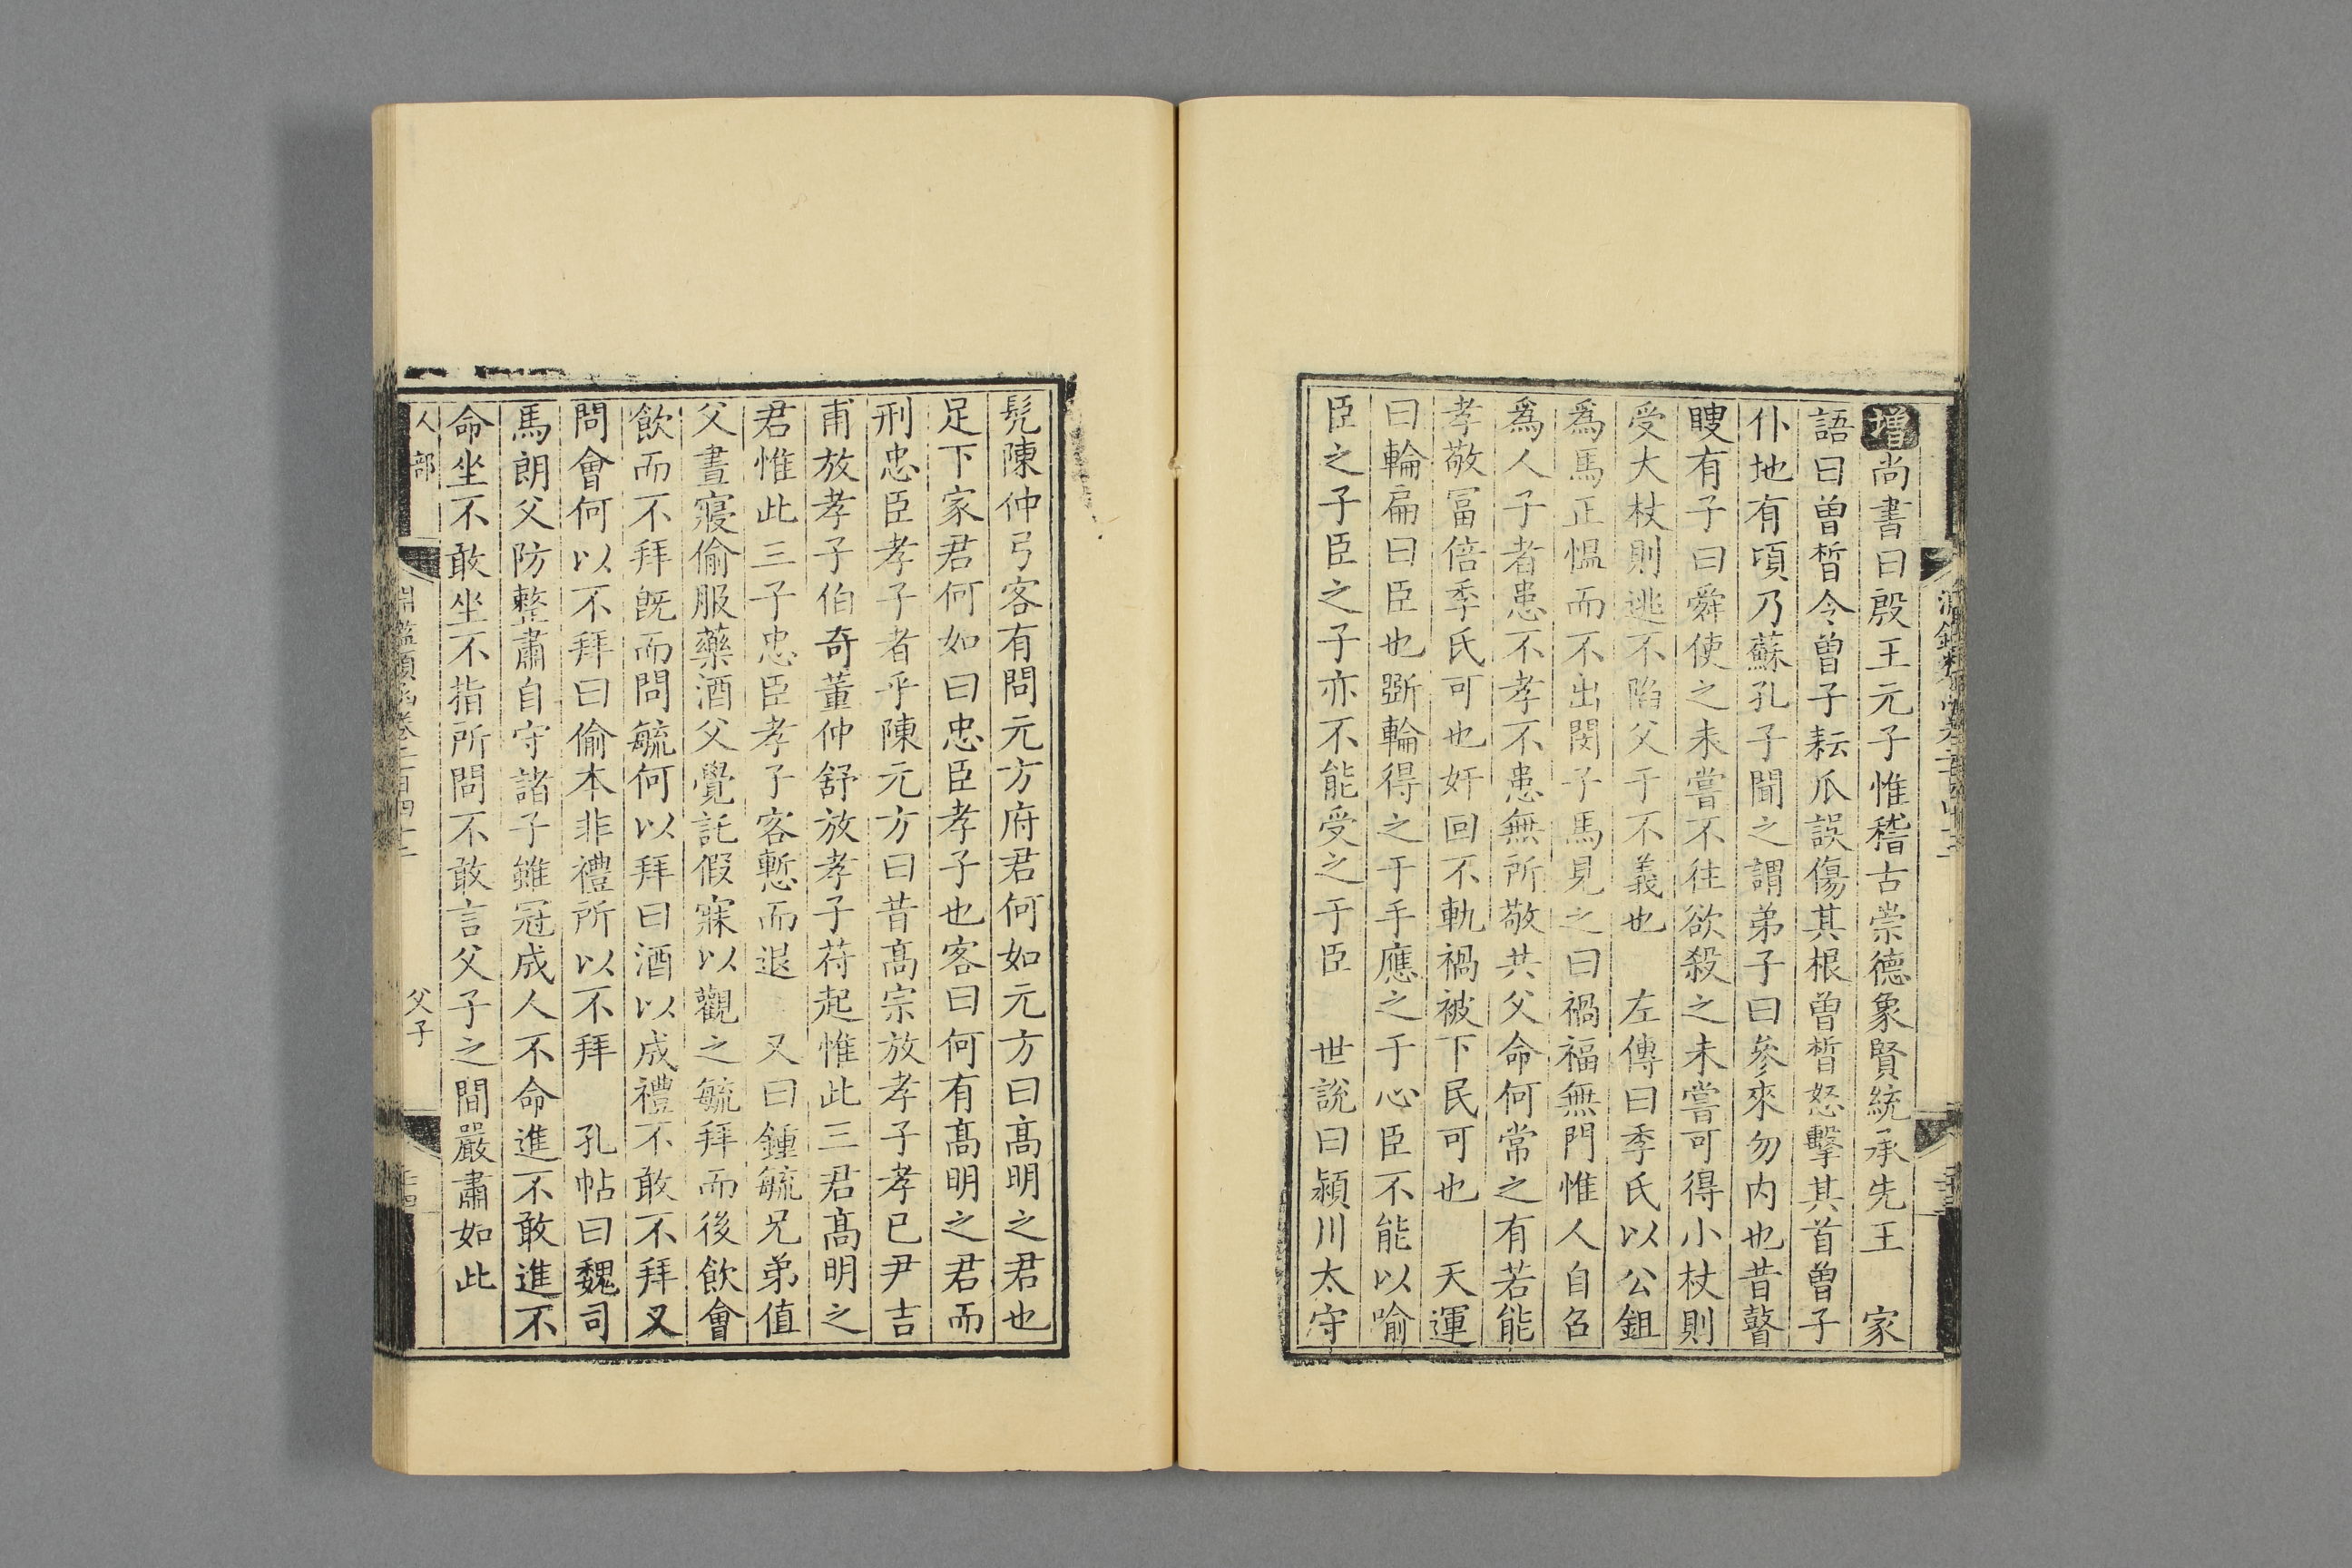 增尚書曰殷王元子惟稽古崇德象賢統承先王　家
語曰曾晳令曾子耘瓜誤傷其根曾晳怒擊其首曾子
仆地有頃乃蘇孔子聞之謂弟子曰參來勿内也昔瞽
瞍有子曰舜使之未嘗不往欲殺之未嘗可得小杖則
受大杖則逃不陷父于不義也　左傳曰季氏以公鉏
爲馬正愠而不出閔子馬見之曰禍福無門惟人自召
爲人子者患不孝不患無所敬共父命何常之有若能
孝敬冨倍季氏可也奸回不軌禍被下民可也　天運
曰輪扁曰臣也斲輪得之于手應之于心臣不能以喻
臣之子臣之子亦不能受之于臣　世說曰潁川太守
髠陳仲弓客有問元方府君何如元方曰髙明之君也
足下家君何如曰忠臣孝子也客曰何有髙明之君而
刑忠臣孝子者乎陳元方曰昔髙宗放孝子孝已尹吉
甫放孝子伯奇董仲舒放孝子苻起惟此三君髙明之
君惟此三子忠臣孝子客慙而退　又曰鍾毓兄弟值
父晝寢偷服藥酒父覺託假寐以觀之毓拜而後飲會
飲而不拜旣而問毓何以拜曰酒以成禮不敢不拜又
問會何以不拜曰偷本非禮所以不拜　孔帖曰魏司
馬朗父防整肅自守諸子雖冠成人不命進不敢進不
命坐不敢坐不指所問不敢言父子之間嚴肅如此
人部　淵鑑類函卷二百四十二　父子